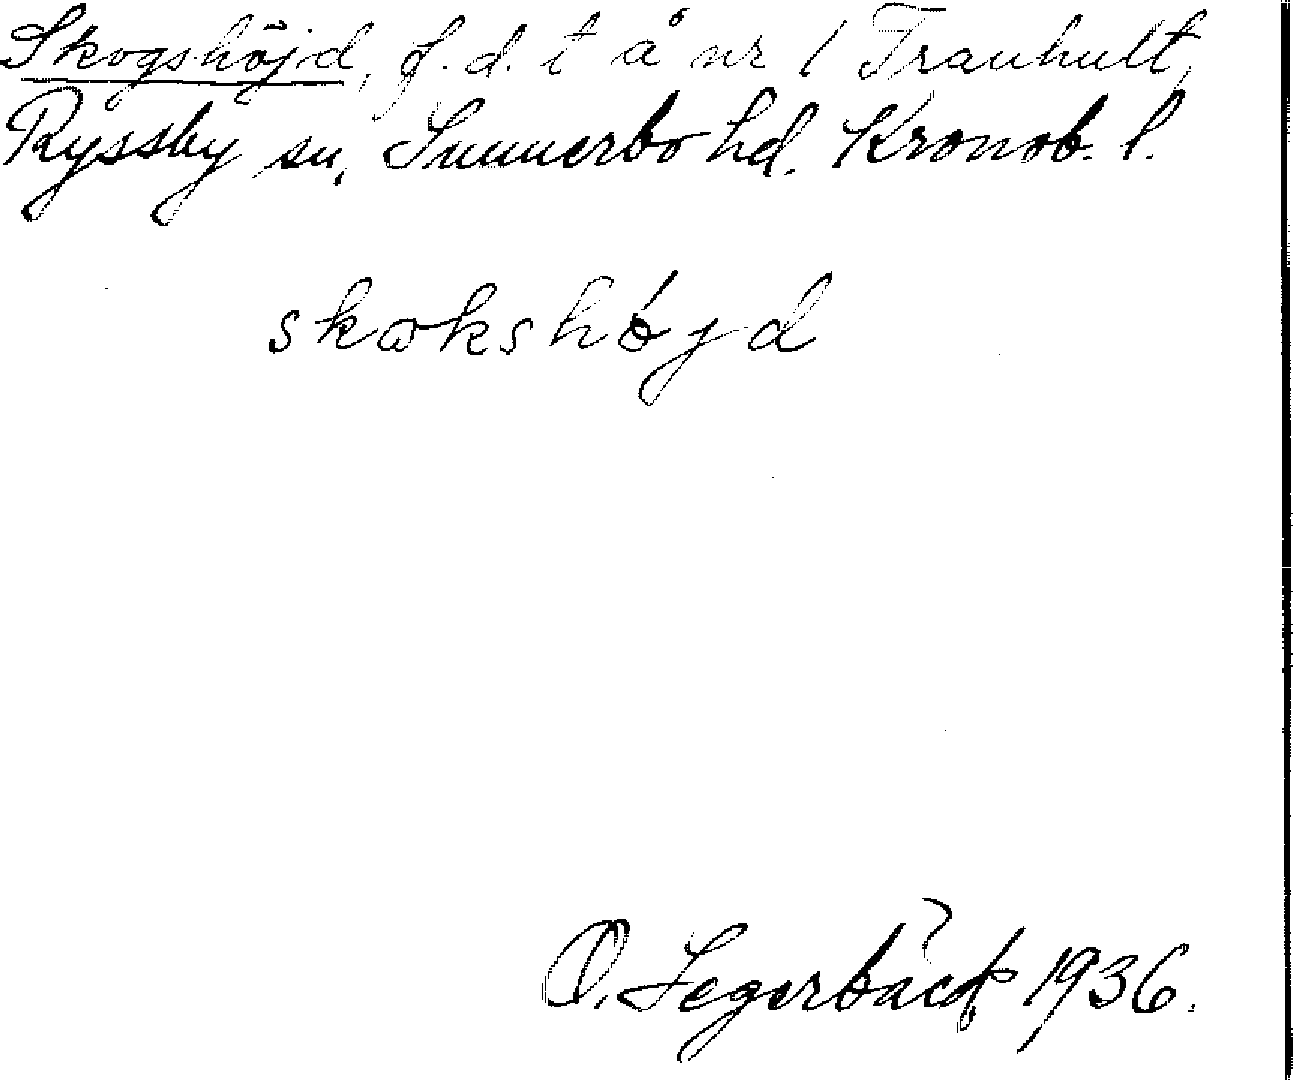 Skogshöjd, f. d. t å nr 1 Tranhult,
Ryssby sn, Sunnerbo hd. Kronob. l.
skωkshøjd
O. Segerbäck 1936.